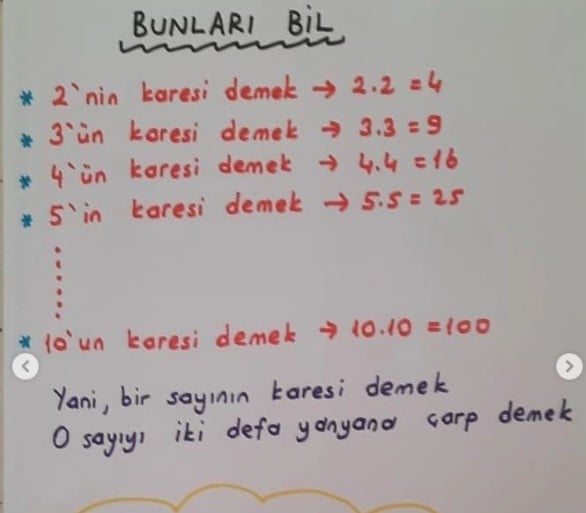 BUNLARI BİL
* 2`nin karesi demek → 2.2 = 4
* 3`ün karesi demek → 3.3 = 9
* 4`ün karesi demek → 4.4 = 16
* 5`in karesi demek → 5.5 = 25
* 10`un karesi demek → 10.10 = 100
Yani, bir sayının karesi demek
O sayıyı iki defa yanyana çarp demek